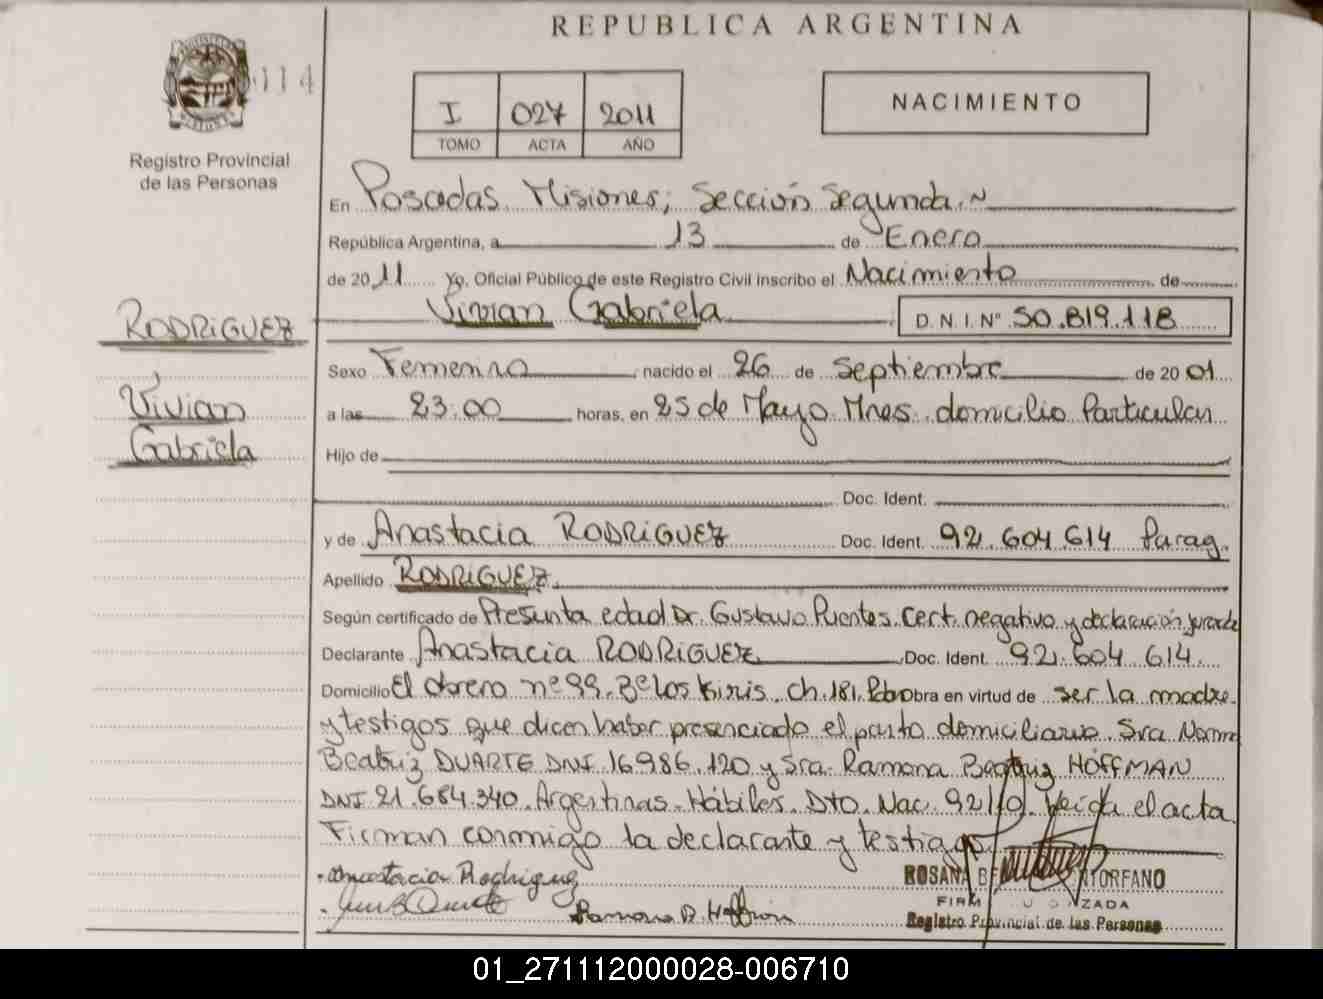 REPUBLICA ARGENTINA
114
Registro Provincial
de las Personas
I 027 2011
TOMO ACTA AÑO
NACIMIENTO
En Posadas. Misiones; Sección Segunda.
República Argentina, a 13 de Enero
de 2011 Yo, Oficial Público de este Registro Civil inscribo el Nacimiento de
Vivian Gabriela D.N.I. N° 50.819.118
RODRIGUEZ
Vivian
Gabriela
Sexo Femenino nacido el 26 de Septiembre de 2001
a las 23:00 horas, en 25 de Mayo Mnes. domicilio Particular
Hijo de
Doc. Ident.
y de Anastacia RODRIGUEZ Doc. Ident. 92.604.614 Parag.
Apellido RODRIGUEZ.
Según certificado de Presunta edad Dr. Gustavo Puentes. Cert. negativo y declaración jurada
Declarante Anastacia RODRIGUEZ Doc. Ident. 92.604.614.
Domicilio El Obrero n° 99. B° Los Kiris. Ch. 181. Pdas Obra en virtud de ser la madre
y testigos que dicen haber presenciado el parto domiciliario Sra Norma
Beatriz DUARTE DNI 16.986.120 y Sra. Ramona Beatriz HOFFMAN
DNI 21.684.340. Argentinas. Hábiles. Dto. Nac. 92/10. Leída el acta
Firman conmigo la declarante y testigos.
Anastacia Rodriguez
Ramona B. Hoffman
ROSANA
Registro Provincial de las Personas
01_271112000028-006710